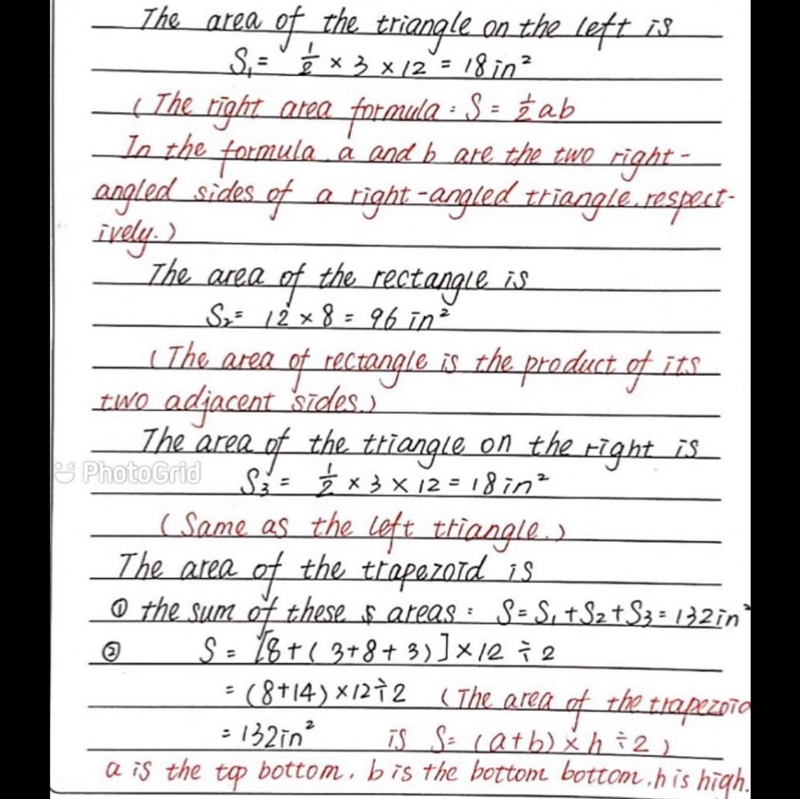 The area of the triangle on the left is
S₁ = 1/2 × 3 × 12 = 18 in²
(The right area formula : S = 1/2 ab
In the formula, a and b are the two right-
angled sides of a right-angled triangle, respect-
ively.)
The area of the rectangle is
S₂ = 12 × 8 = 96 in²
(The area of rectangle is the product of its
two adjacent sides.)
The area of the triangle on the right is
PhotoGrid
S₃ = 1/2 × 3 × 12 = 18 in²
(Same as the left triangle.)
The area of the trapezoid is
① the sum of these areas : S = S₁ + S₂ + S₃ = 132 in²
② S = [8 + ( 3 + 8 + 3 )] × 12 ÷ 2
= (8 + 14) × 12 ÷ 2 (The area of the trapezoid
= 132 in² is S = (a+b) × h ÷ 2 )
a is the top bottom, b is the bottom bottom, h is high.